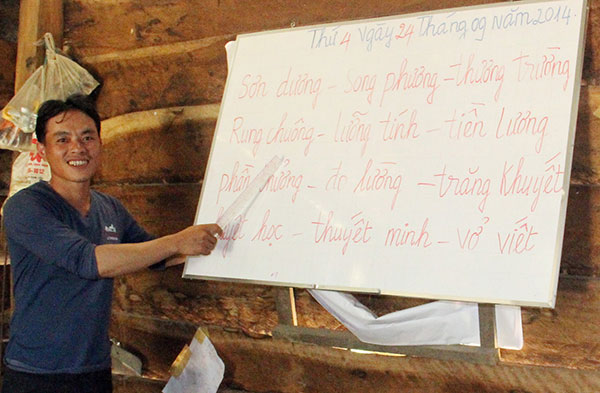 Thứ 4 Ngày 24 Tháng 09 Năm 2014.
Sơn dương - song phương - thương trường
Rung chuông - lưỡng tính - tiền lương
phần thưởng - đo lường - trăng khuyết
học - thuyết minh - vở viết